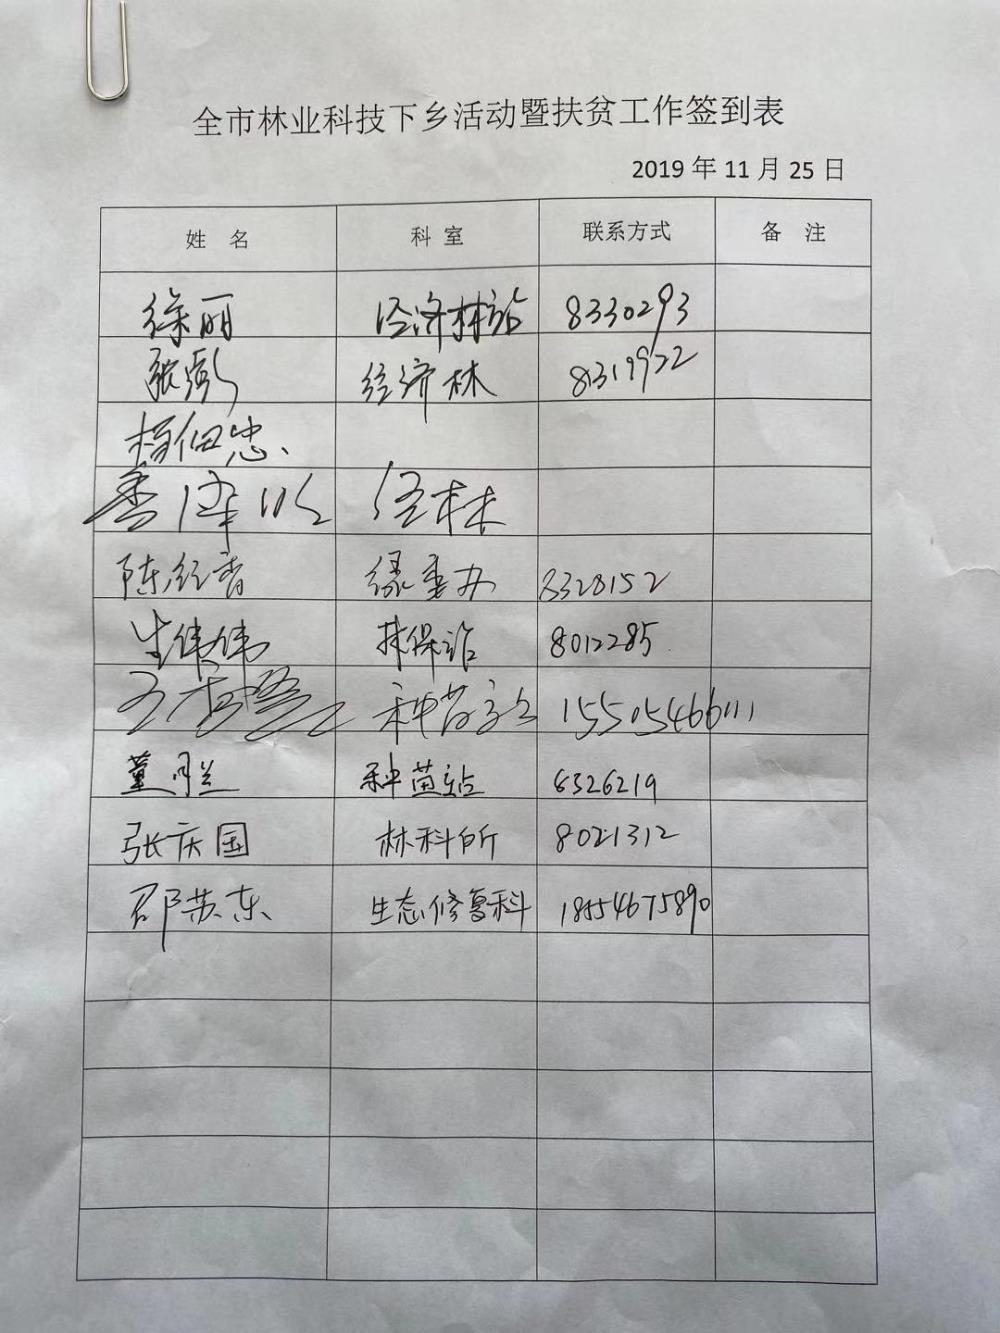 全市林业科技下乡活动暨扶贫工作签到表
2019 年 11 月 25 日
姓 名 科 室 联系方式 备 注
徐丽 经济林站 8330293
张彭 经济林 8319922
杨佃忠、
泽 经林
陈红香 绿委办 8328152
牛伟伟 林保站 8012285
王 种苗站 15505466111
董月兰 种苗站 8326219
张庆国 林科所 8021312
邵苏东 生态修复科 18554675890